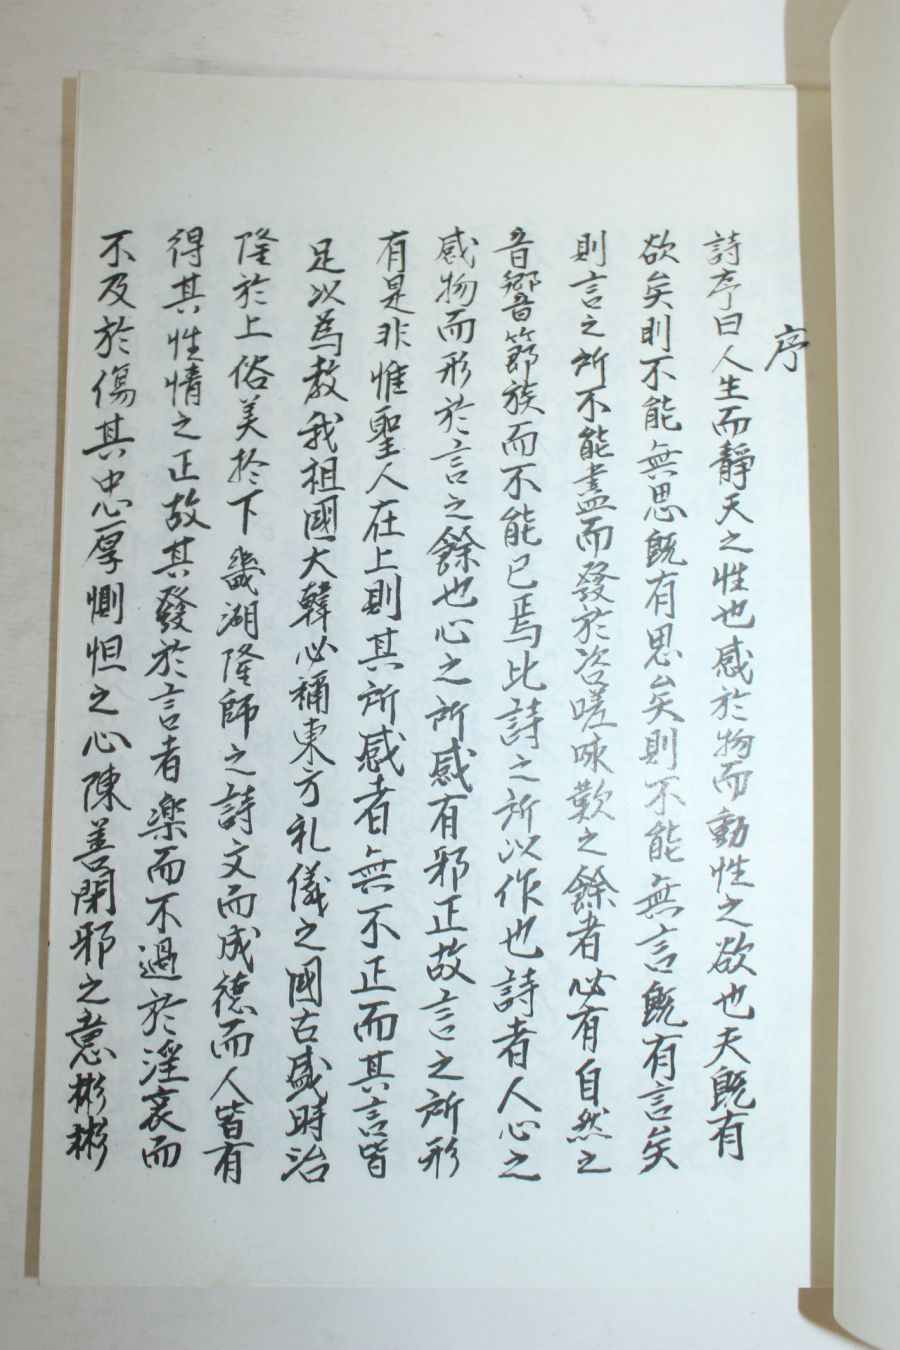 序
詩序曰人生而靜天之性也感於物而動性之欲也夫旣有
欲矣則不能無思旣有思矣則不能無言旣有言矣
則言之所不能盡而發於咨嗟咏歎之餘者必有自然之
音響節族而不能已焉比詩之所以作也詩者人心之
感物而形於言之餘也心之所感有邪正故言之所形
有是非惟聖人在上則其所感者無不正而其言皆
足以為教我祖國大韓必稱東方礼儀之國古盛時治
隆於上俗美於下畿湖隆師之詩文而成德而人皆有
得其性情之正故其發於言者楽而不過於淫哀而
不及於傷其忠厚惻怛之心陳善閉邪之意彬彬